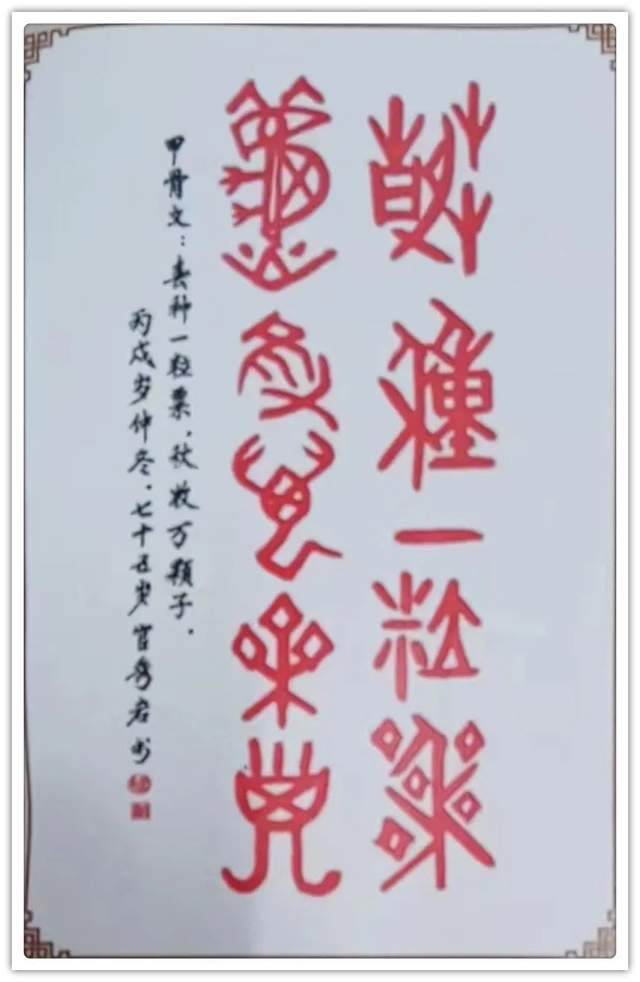 春種一粒粟
秋收萬顆子
甲骨文：春种一粒粟，秋收万颗子。
丙戌岁仲冬，七十五岁官秀君书